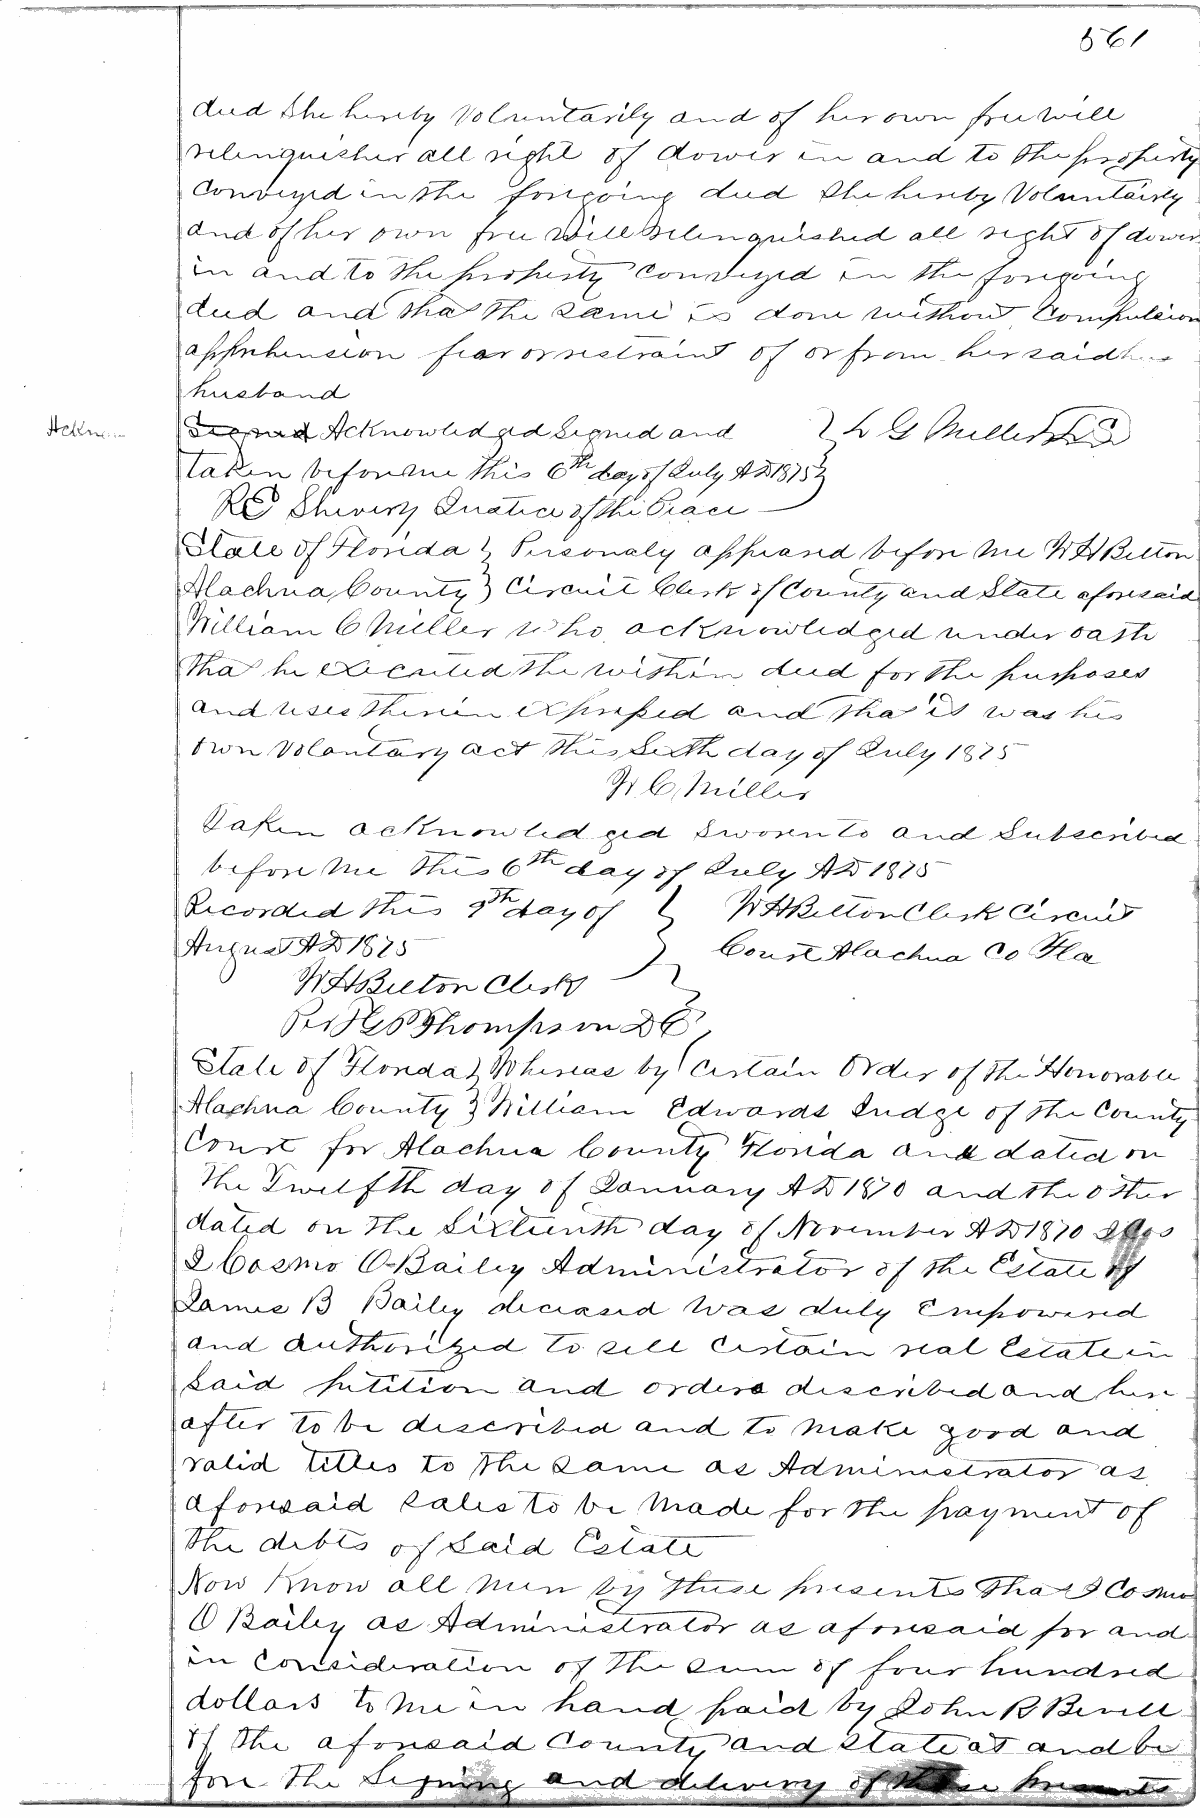 561
deed She hereby Voluntarily and of her own free will
relinquisher all right of dower in and to the property
Conveyed in the foregoing deed She hereby Voluntairly
and of her own free will relinquished all right of dower
in and to the property Conveyed in the foregoing
deed and that the same is done without Compulsion
apprehension fear or restraint of or from her said
husband
Signed Acknowledged Signed and } L G Miller LS
taken before me this 6th day of July AD 1875
R C Shivery Justice of the Peace
State of Florida } Personaly appeared before me W H Belton
Alachua County } Circuit Clerk of County and State aforesaid
William C Miller who acknowledged under oath
that he executed the within deed for the purposes
and uses therein expressed and that it was his
own Voluntary act this Sixth day of July 1875
W C Miller
Taken acknowledged Sworn to and Subscribed
before me this 6th day of July AD 1875
Recorded this 9th day of } W H Belton Clerk Circuit
August AD 1875 Court Alachua Co Fla
W H Belton Clerk
Per Thompson D C
State of Florida } Whereas by Certain Order of the Honorable
Alachua County } William Edwards Judge of the County
Court for Alachua County Florida and dated on
the Twelfth day of January AD 1870 and the other
dated on the Sixteenth day of November AD 1870
I Cosmo O Bailey Administrator of the Estate of
James B Bailey deceased was duly Empowered
and authorized to sell Certain real Estate in
said petition and orders described and here
after to be described and to make good and
valid titles to the same as Administrator as
aforesaid sales to be made for the payment of
the debts of said Estate
Now Know all men by these presents that I Cosmo
O Bailey as Administrator as aforesaid for and
in Consideration of the sum of four hundred
dollars to me in hand paid by John R Bevill
of the aforesaid County and State at and be
fore the Signing and delivery of these presents